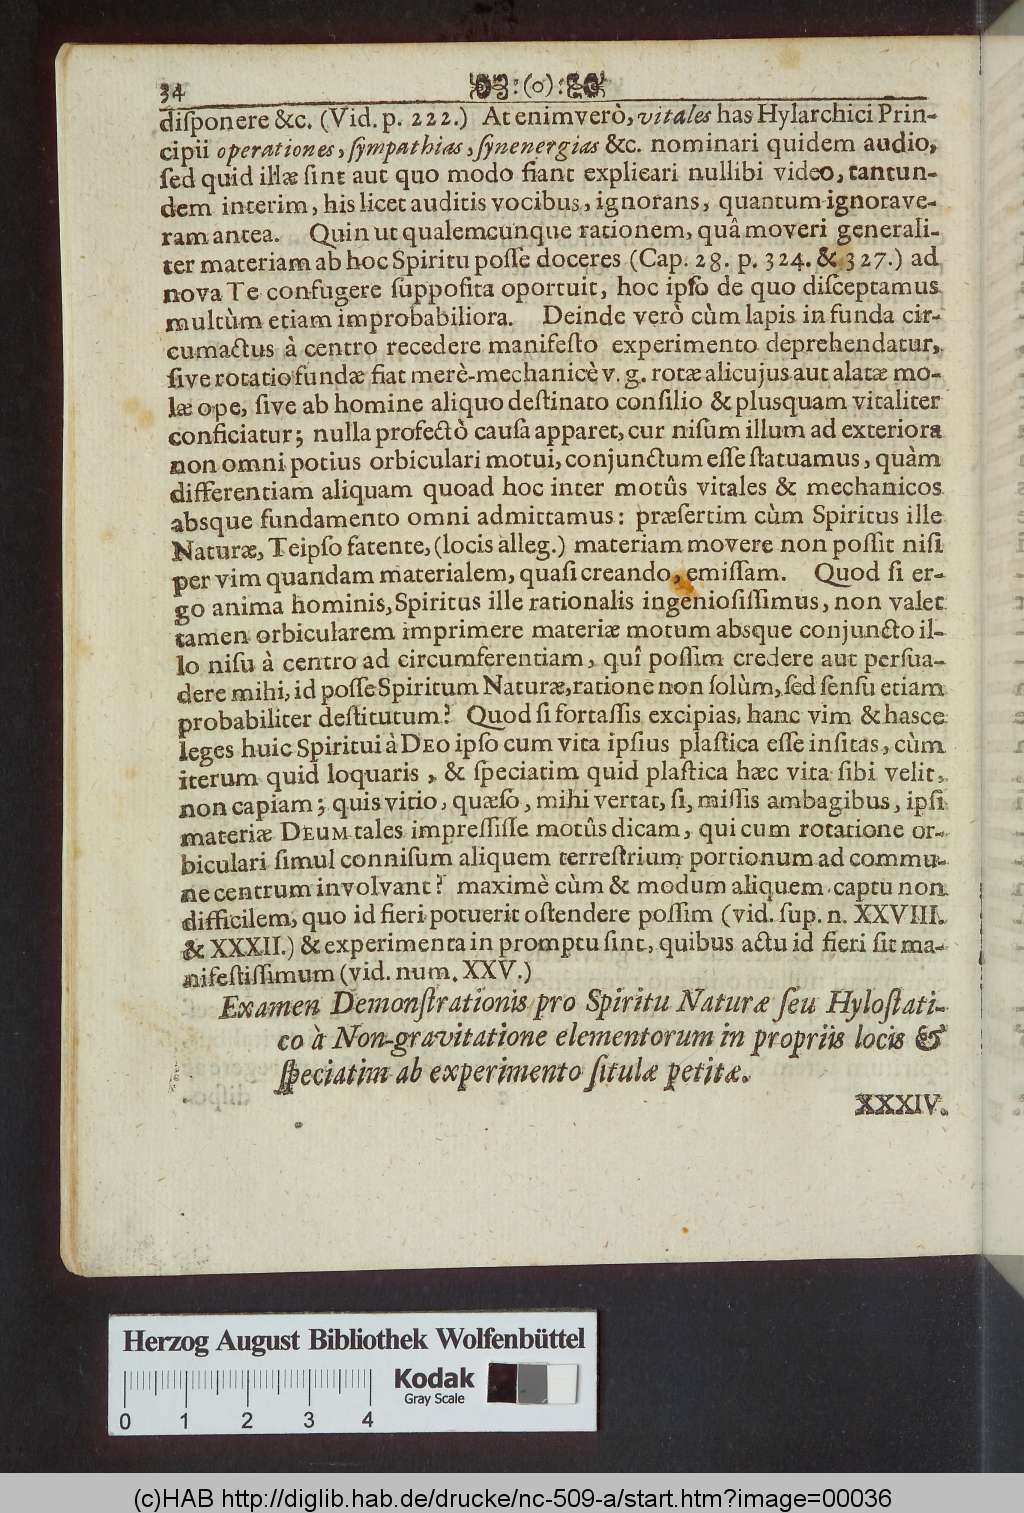 34 :(o):
diſponere &c. (Vid. p. 222.) At enimverò, vitales has Hylarchici Prin-
cipii operationes, ſympathias, ſynenergias &c. nominari quidem audio,
ſed quid illæ ſint aut quo modo fiant explicari nullibi video, tantun-
dem interim, his licet auditis vocibus, ignorans, quantum ignorave-
ram antea. Quin ut qualemcunque rationem, quâ moveri generali-
ter materiam ab hoc Spiritu poſſe doceres (Cap. 28. p. 324. & 327.) ad
nova Te confugere ſuppoſita oportuit, hoc ipſo de quo diſceptamus
multùm etiam improbabiliora. Deinde verò cùm lapis in funda cir-
cumactus à centro recedere manifeſto experimento deprehendatur,
ſive rotatio fundæ fiat merè-mechanicè v. g. rotæ alicujus aut alatæ mo-
læ ope, ſive ab homine aliquo deſtinato conſilio & plusquam vitaliter
conficiatur; nulla profectò cauſa apparet, cur niſum illum ad exteriora
non omni potius orbiculari motui, conjunctum eſſe ſtatuamus, quàm
differentiam aliquam quoad hoc inter motûs vitales & mechanicos
absque fundamento omni admittamus: præſertim cùm Spiritus ille
Naturæ, Teipſo fatente, (locis alleg.) materiam movere non poſſit niſi
per vim quandam materialem, quaſi creando, emiſſam. Quod ſi er-
go anima hominis, Spiritus ille rationalis ingenioſiſſimus, non valet
tamen orbicularem imprimere materiæ motum absque conjuncto il-
lo niſu à centro ad circumferentiam, quî poſſim credere aut perſua-
dere mihi, id poſſe Spiritum Naturæ, ratione non ſolùm, ſed ſenſu etiam
probabiliter deſtitutum? Quod ſi fortaſſis excipias, hanc vim & hasce
leges huic Spiritui à DEO ipſo cum vita ipſius plaſtica eſſe inſitas, cùm
iterum quid loquaris, & ſpeciatim quid plaſtica hæc vita ſibi velit,
non capiam; quis vitio, quæſo, mihi vertat, ſi, miſſis ambagibus, ipſi
materiæ DEUM tales impreſſiſſe motûs dicam, qui cum rotatione or-
biculari ſimul conniſum aliquem terreſtrium portionum ad commu-
ne centrum involvant? maximè cùm & modum aliquem captu non
difficilem, quo id fieri potuerit oſtendere poſſim (vid. ſup. n. XXVIII.
& XXXII.) & experimenta in promptu ſint, quibus actu id fieri ſit ma-
nifeſtiſſimum (vid. num. XXV.)
Examen Demonſtrationis pro Spiritu Naturæ ſeu Hyloſtati-
co à Non-gravitatione elementorum in propriis locis &
ſpeciatim ab experimento ſitulæ petitæ.
XXXIV.
Herzog August Bibliothek Wolfenbüttel
Kodak
Gray Scale
0 1 2 3 4
(c)HAB http://diglib.hab.de/drucke/nc-509-a/start.htm?image=00036